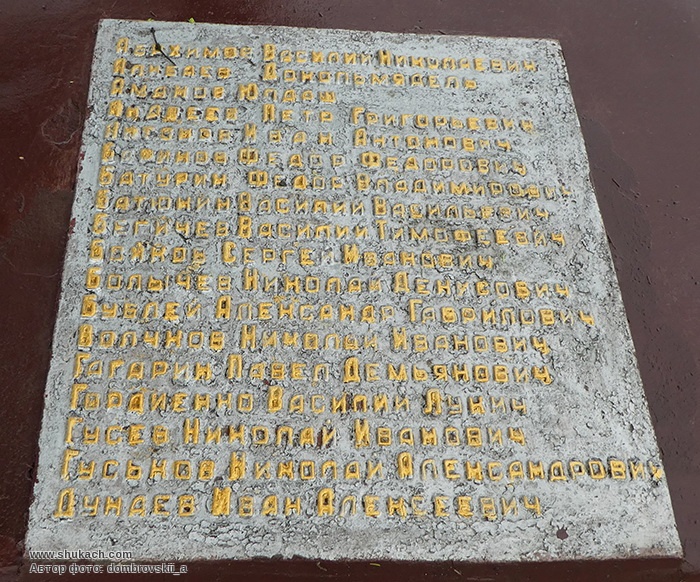 Абакимов Василий Николаевич
Алибаев
Аманов Юлдаш
Андреев Петр Григорьевич
Иван Антонович
Федор Федорович
Батурин Федор Владимирович
Василий Васильевич
Бегичев Василий Тимофеевич
Бойков Сергей Иванович
Болычев Николай Денисович
Бублей Александр Гаврилович
Волчков Николай Иванович
Гагарин Павел Демьянович
Гордиенко Василий Лукич
Гусев Николай Иванович
Гуськов Николай Александрович
Дунаев Иван Алексеевич
www.shukach.com
Автор фото: dombrovskii_a